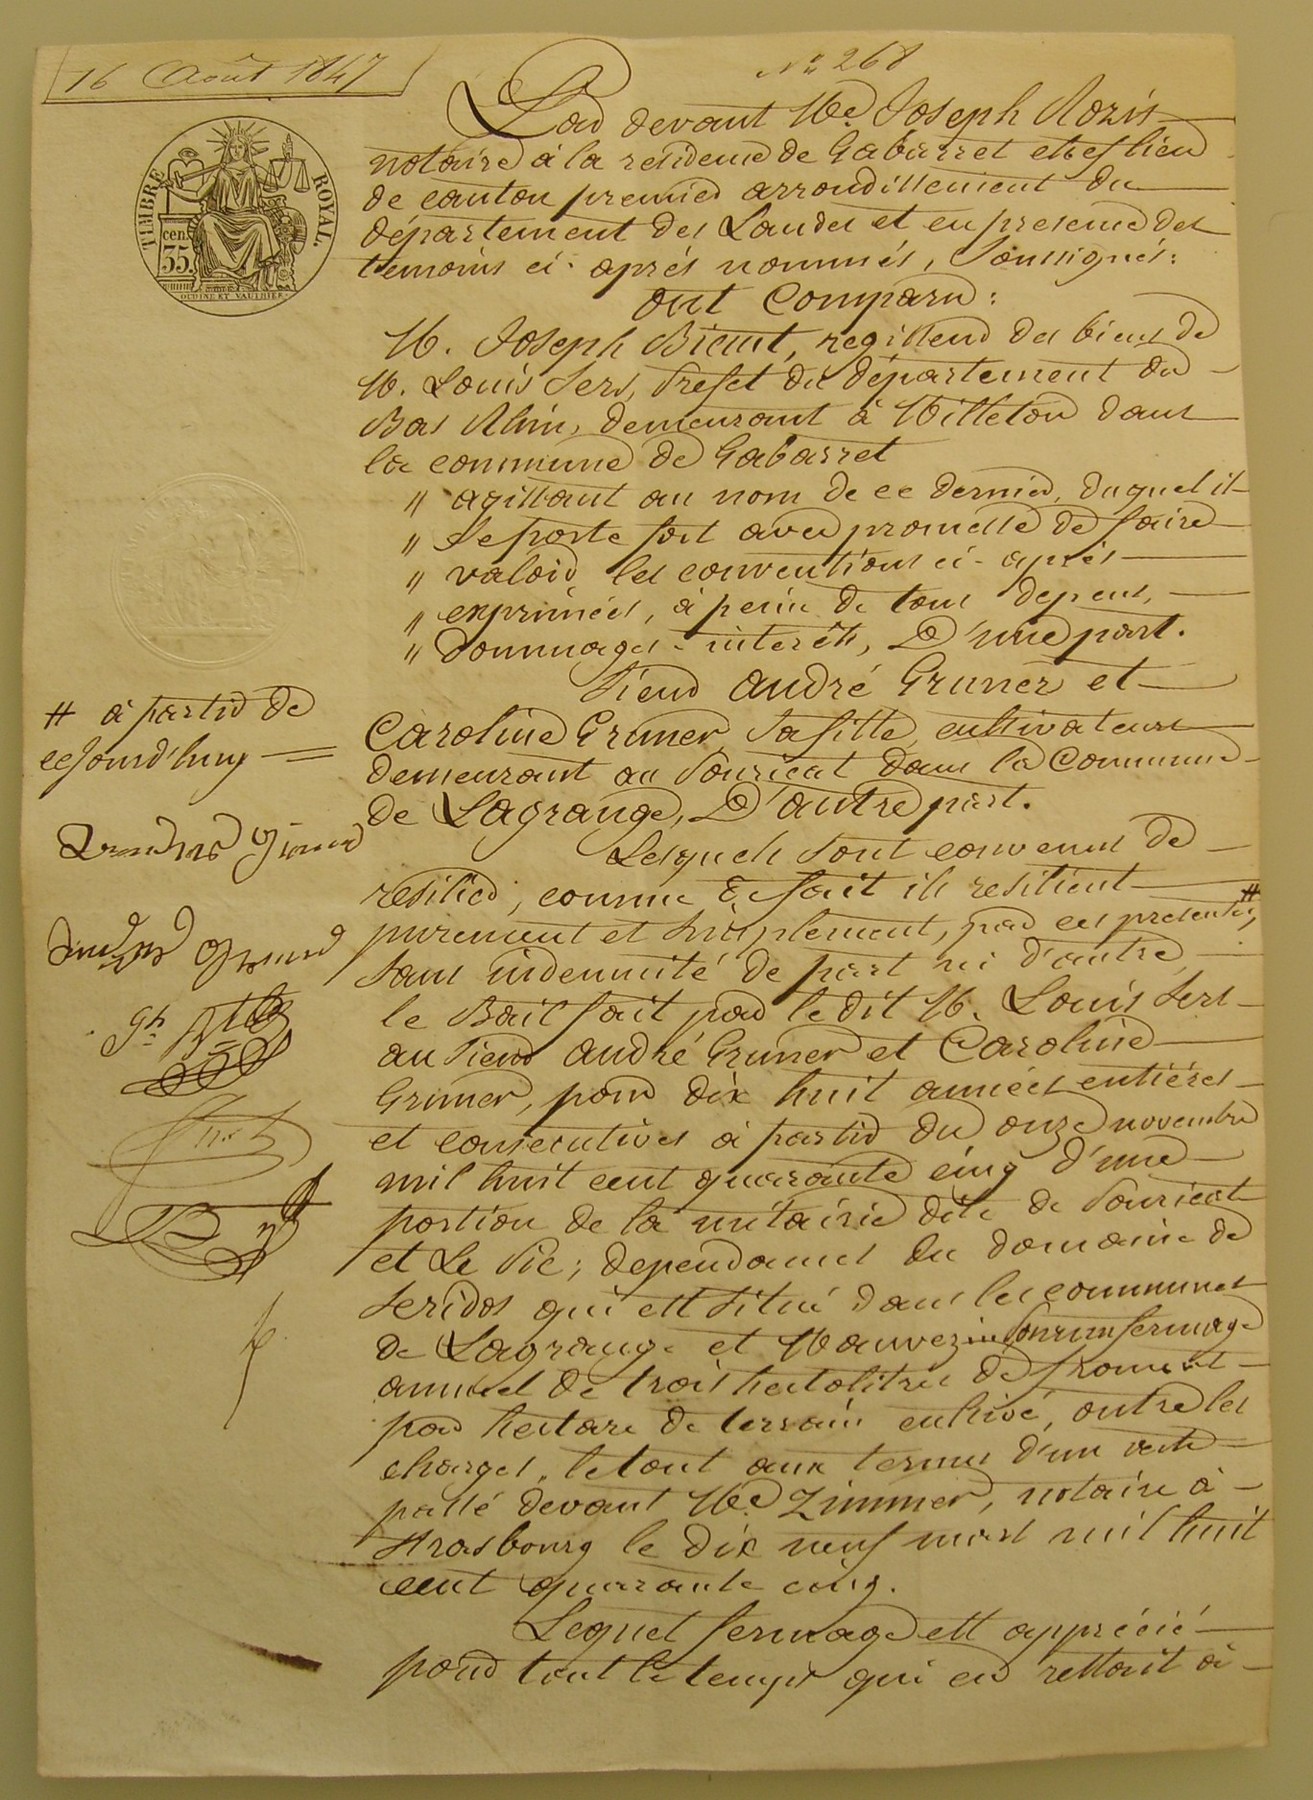 16 Août 1847
No 268
TIMBRE ROYAL.
cen.
35.
OUDINE ET VAUTHIER.
Par devant Me. Joseph Rozis
notaire à la residence de Gabarret chef lieu
de canton premier arrondissement du
département des Landes et en presence des
temoins ci-aprés nommés, soussignés:
Ont Comparu:
M. Joseph Bicaut, regisseur des biens de
M. Louis Sers, Prefet du département du
Bas Rhin, demeurant à Milleton dans
la commune de Gabarret
" agissant au nom de ce dernier, duquel il
" se porte fort avec promesse de faire
" valoir les conventions ci-aprés
" exprimées, à peine de tous depens,
" dommages-interêts, D'une part.
Sieur André Gruner et
Caroline Gruner sa fille, cultivateurs
demeurant au Souricat dans la Commune
de Lagrange, D'autre part.
Lesquels sont convenus de
resilier, comme de fait ils resilient
purement et simplement, par ces presentes, #
sans indemnité de part ni d'autre,
le Bail fait par le dit M. Louis Sers
au Sieur André Gruner et Caroline
Gruner, pour dix huit années entiéres
et consecutives à partir du onze novembre
mil huit cent quarante cinq d'une
portion de la metairie dite de Souricat
et Le Pic; dependances du domaine de
Seridos qui est situé dans les communes
de Lagrange et Mauvezin pour un fermage
annuel de trois hectolitres de froment
par hectare de terrain cultivé, outre les
charges, le tout aux termes d'un acte
passé devant Me. Zimmer, notaire à
Strasbourg le dix neuf mars mil huit
cent quarante cinq.
Lequel fermage est apprécié
pour tout le temps qui en restait à
# à partir de
cejourd'huy